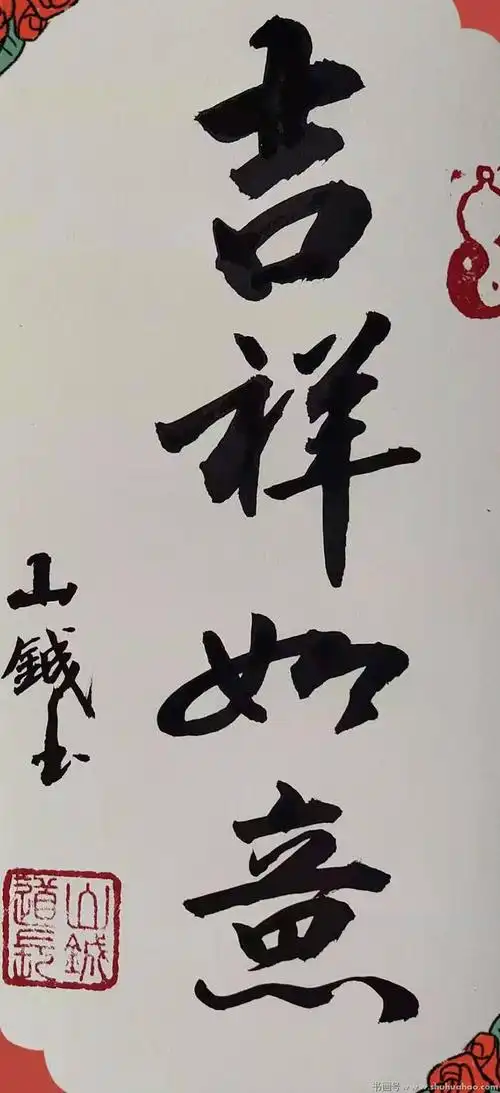 吉祥如意
山鉞书
山鉞
道长
书画号 www.shuhuahao.com